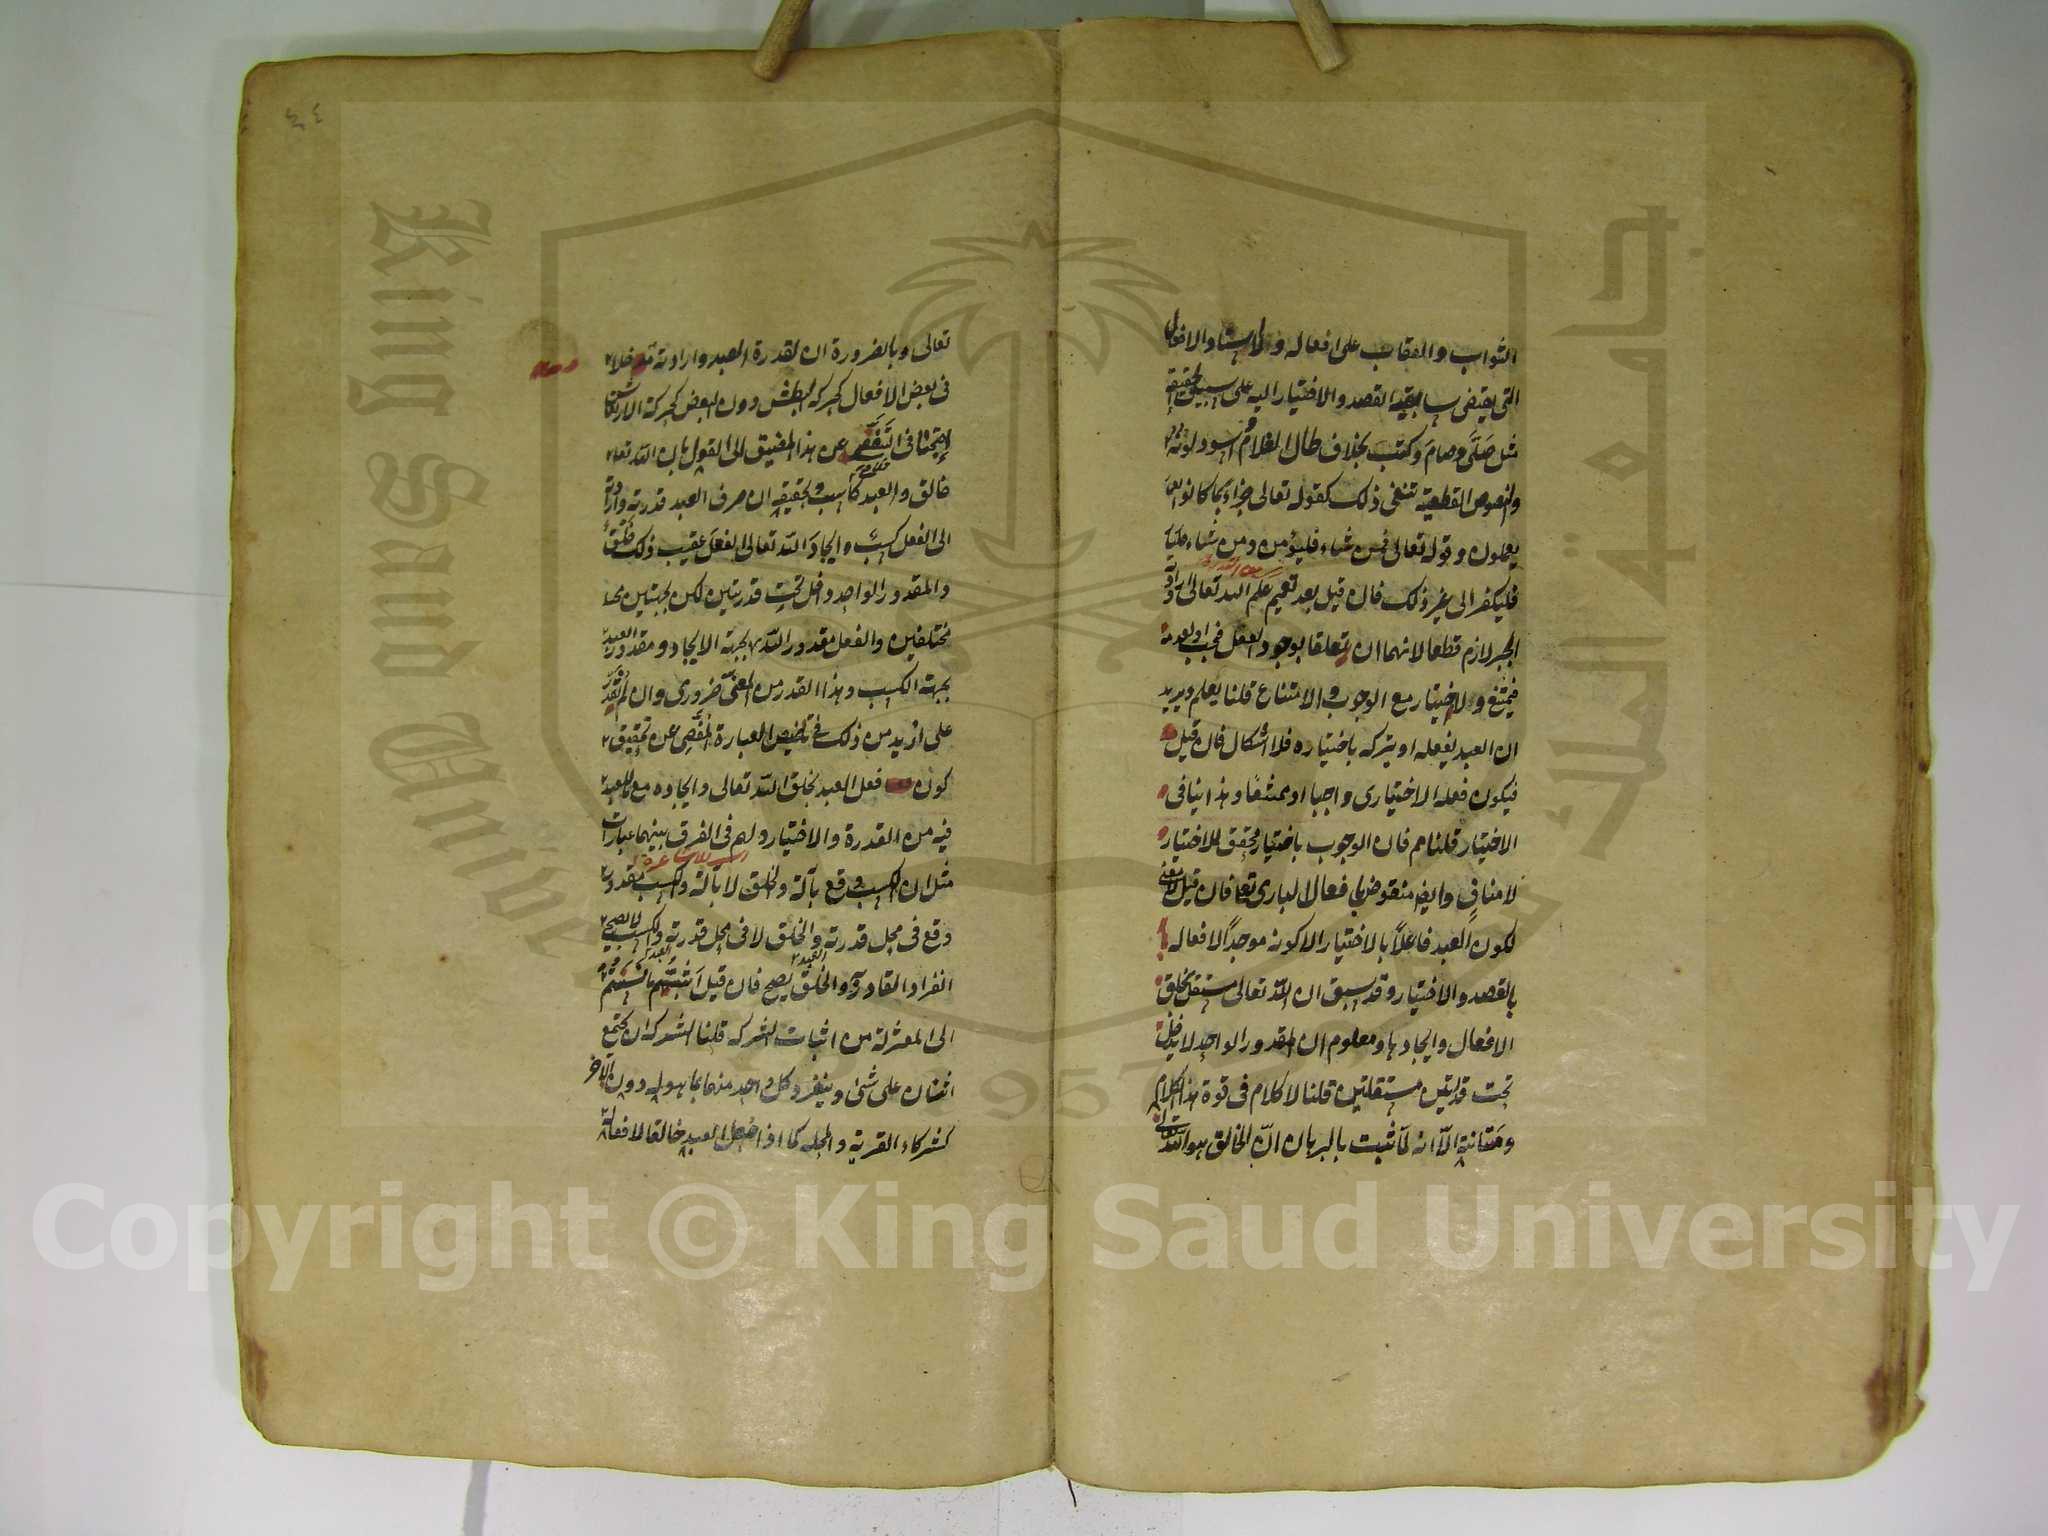 الثواب والعقاب على افعاله ولا اسناد الافعال
التى يقتضى سابقية القصد والاختيار اليه على سبيل الحقيقة
مثل صَلَّى وصامَ وكتب بخلاف طال الغلام واسود لونه
والنصوص القطعية تنفى ذلك كقوله تعالى جزاء بما كانوا
يعملون وقوله تعالى فمن شاء فليؤمن ومن شاء فليكفر
فليكفر الى غير ذلك فان قيل بعد تعميم علم الله تعالى وارادته
الجبر لازم قطعا لانهما ان يتعلقا بوجود الفعل فيجب او بعدمه
فيمتنع ولا اختيار مع الوجوب والامتناع قلنا يعلم ويريد
ان العبد يفعله او يتركه باختياره فلا اشكال فان قيل
فيكون فعله الاختيارى واجبا او ممتنعًا وهذا ينافى
الاختيار قلنا مم فان الوجوب باختيار محقق للاختيار
لا منافٍ وايضا منقوض بافعال البارى تعا فان قيل لا معنى
لكون العبد فاعلاً بالاختيار الا كونه موجدًا لافعاله
بالقصد والاختيار وقد سبق ان الله تعالى مستقل بخلق
الافعال وايجادها ومعلوم ان المقدور الواحد لا يدخل
تحت قدرتين مستقلتين قلنا لا كلام فى قوة هذا الكلام
ومتانته الا انه لما ثبت بالبرهان ان الخالق هو الله تعالى
٤٤
تعالى وبالضرورة ان لقدرة العبد وارادته مدخلا
فى بعض الافعال كحركة البطش دون البعض كحركة الارتعاش
احتجنا فى التَفَصِّى عن هذا المضيق الى القول بان الله تعا
خالق والعبد كاسب وتحقيقه ان صرف العبد قدرته وارادته
الى الفعل كسبٌ وايجادَ الله تعالى الفعلَ عقيب ذلك خلقٌ
والمقدور الواحد داخل تحت قدرتين لكن بجهتين
مختلفين والفعل مقدور الله بجهة الايجاد ومقدور العبد
بجهة الكسب وهذا القدر من المعنى ضرورى وان لم نقدر
على ازيد من ذلك فى تلخيص العبارة المفصى عن تحقيق
كون فعل العبد بخلق الله تعالى وايجاده مع ما للعبد
فيه من القدرة والاختيار ولهم فى الفرق بينهما عبارات
مثل ان الكسب وقع بآلة والخلق لا بآلة والكسب مقدور
وقع فى محل قدرته والخلق لا فى محل قدرته والكسب لا يصح
انفراد القادر به والخلق يصح فان قيل اَثبتُّم ما نسبتم
الى المعتزلة من اثبات الشركة قلنا الشركة ان يجتمع
اثنان على شئ وينفرد كل واحد منهما بما هو له دون الآخر
كشركاء القرية والمحلة كما اذا جعل العبد خالقا لافعاله
Copyright © King Saud University
King Saud University
جامعة الملك سعود
1957